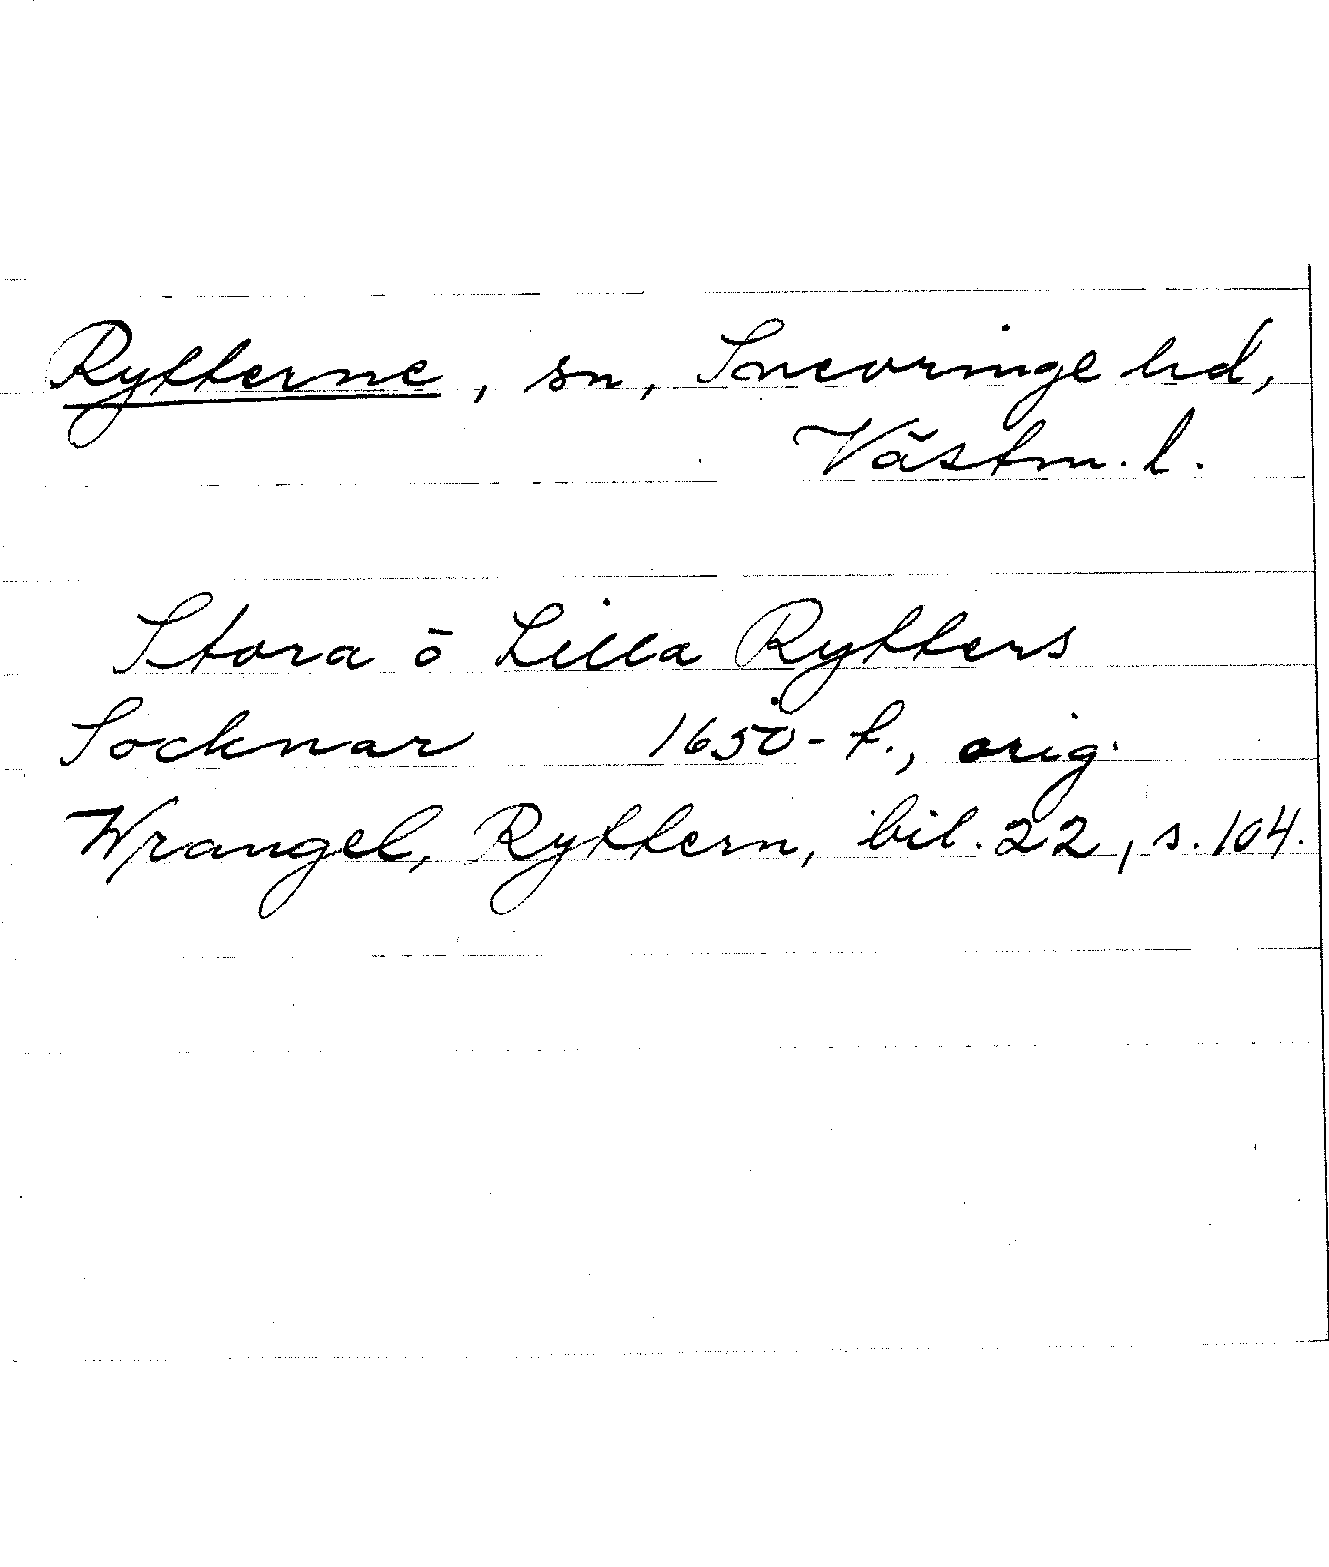 Rytterne, sn, Snevringe hd,
Västm. l.
Stora ō Lilla Rytters
Socknar 1650-t., orig.
Wrangel, Ryttern, bil. 22, s. 104.